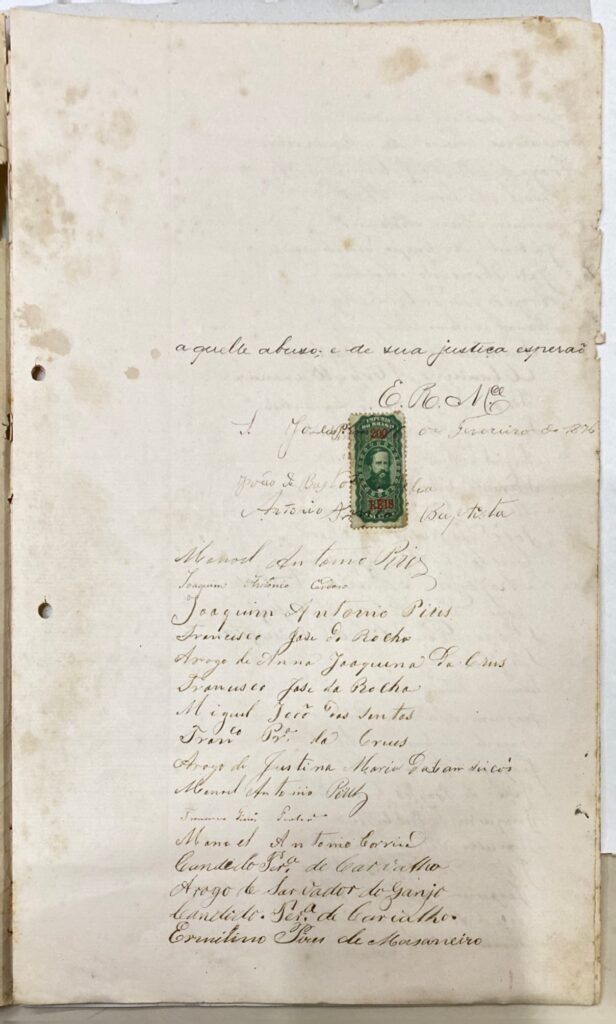 aquelle abuso; e de sua justiça esperaõ
E. R. M.ce
S. José Fevereiro de 1876
IMPERIO DO BRASIL
200
REIS
João de
Antonio Baptista
Manoel Antonio
Joaquim Antonio Cardoso
Joaquim Antonio Pires
Francisco Jose da Rocha
Arogo de Anna Joaquina da Crus
Francisco Jose da Rocha
Miguel João dos Santos
Fran.co Pr.a da Cruus
Arogo de Justina Maria
Manoel Antonio
Francisco
Manoel Antonio Corrêa
Candido Per.a de Carvalho
Arogo de Salvador do
Candido Per.a de Carvalho
Ermilino Pires de